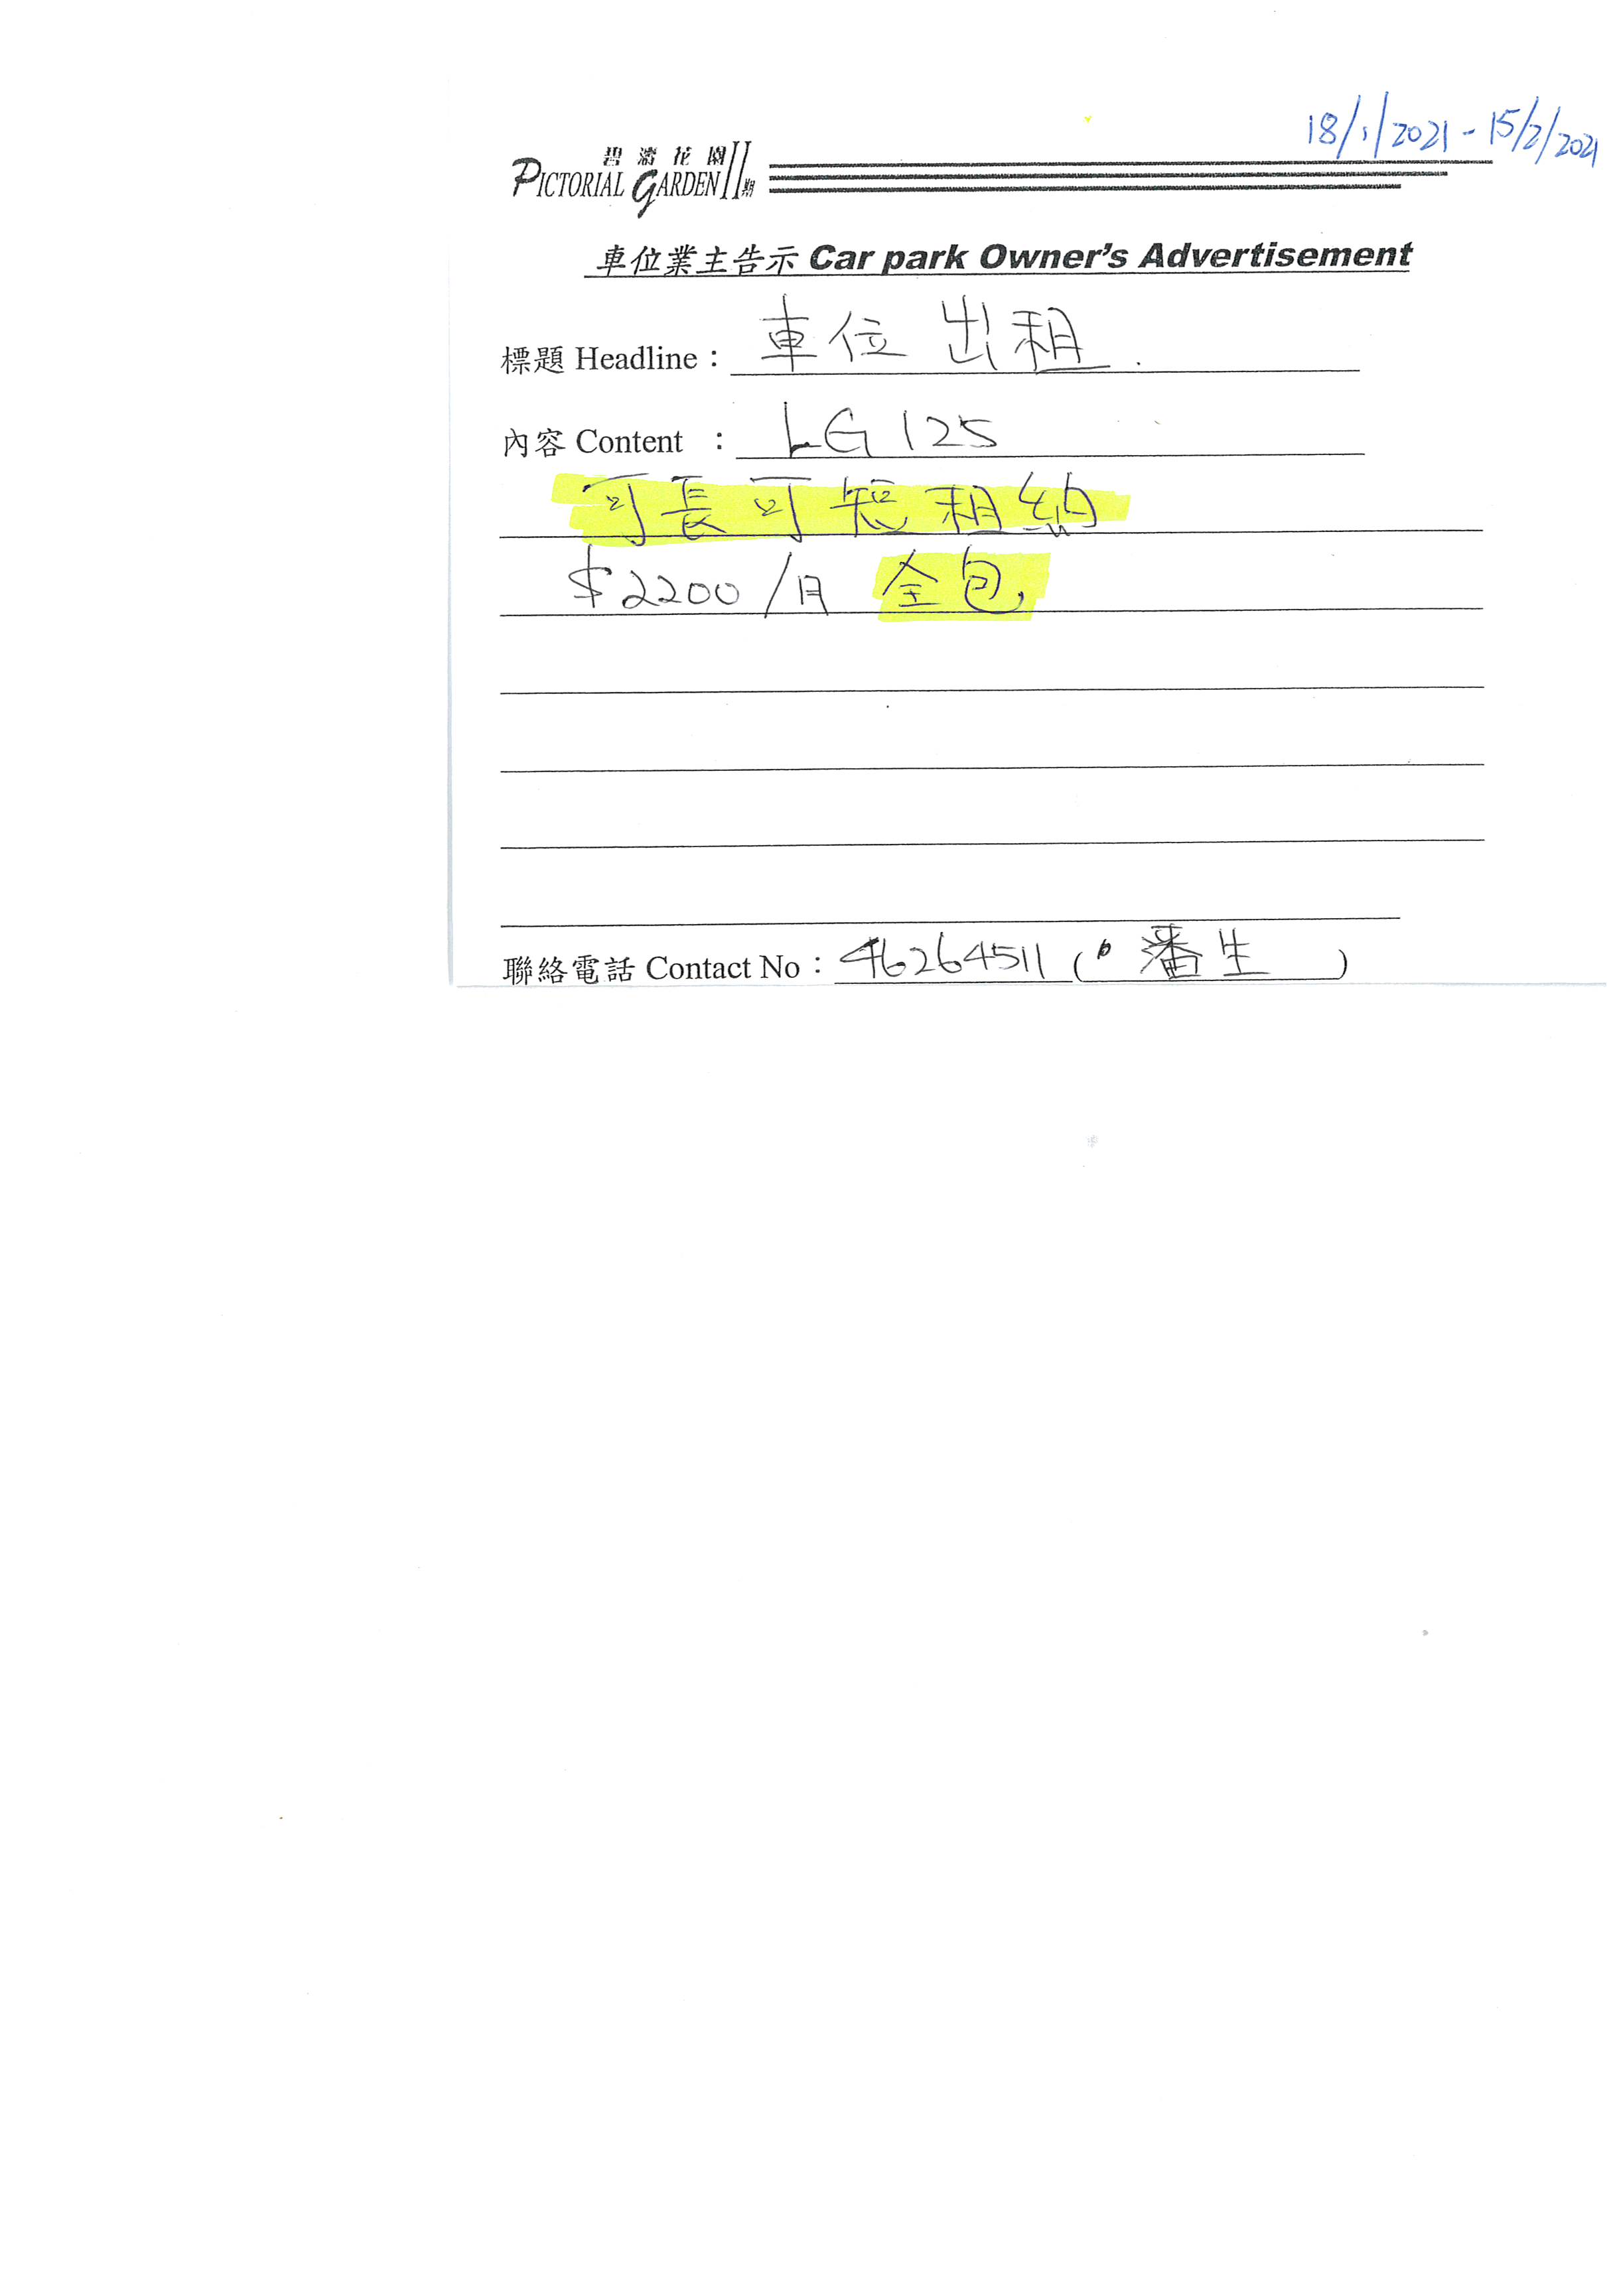 18/1/2021 - 15/2/2021
碧濤花園 II期
PICTORIAL GARDEN
車位業主告示 Car park Owner's Advertisement
標題 Headline： 車位出租
內容 Content ： LG 125
可長可短租約
$2200/月 全包
聯絡電話 Contact No： 46264511 ( 潘生 )